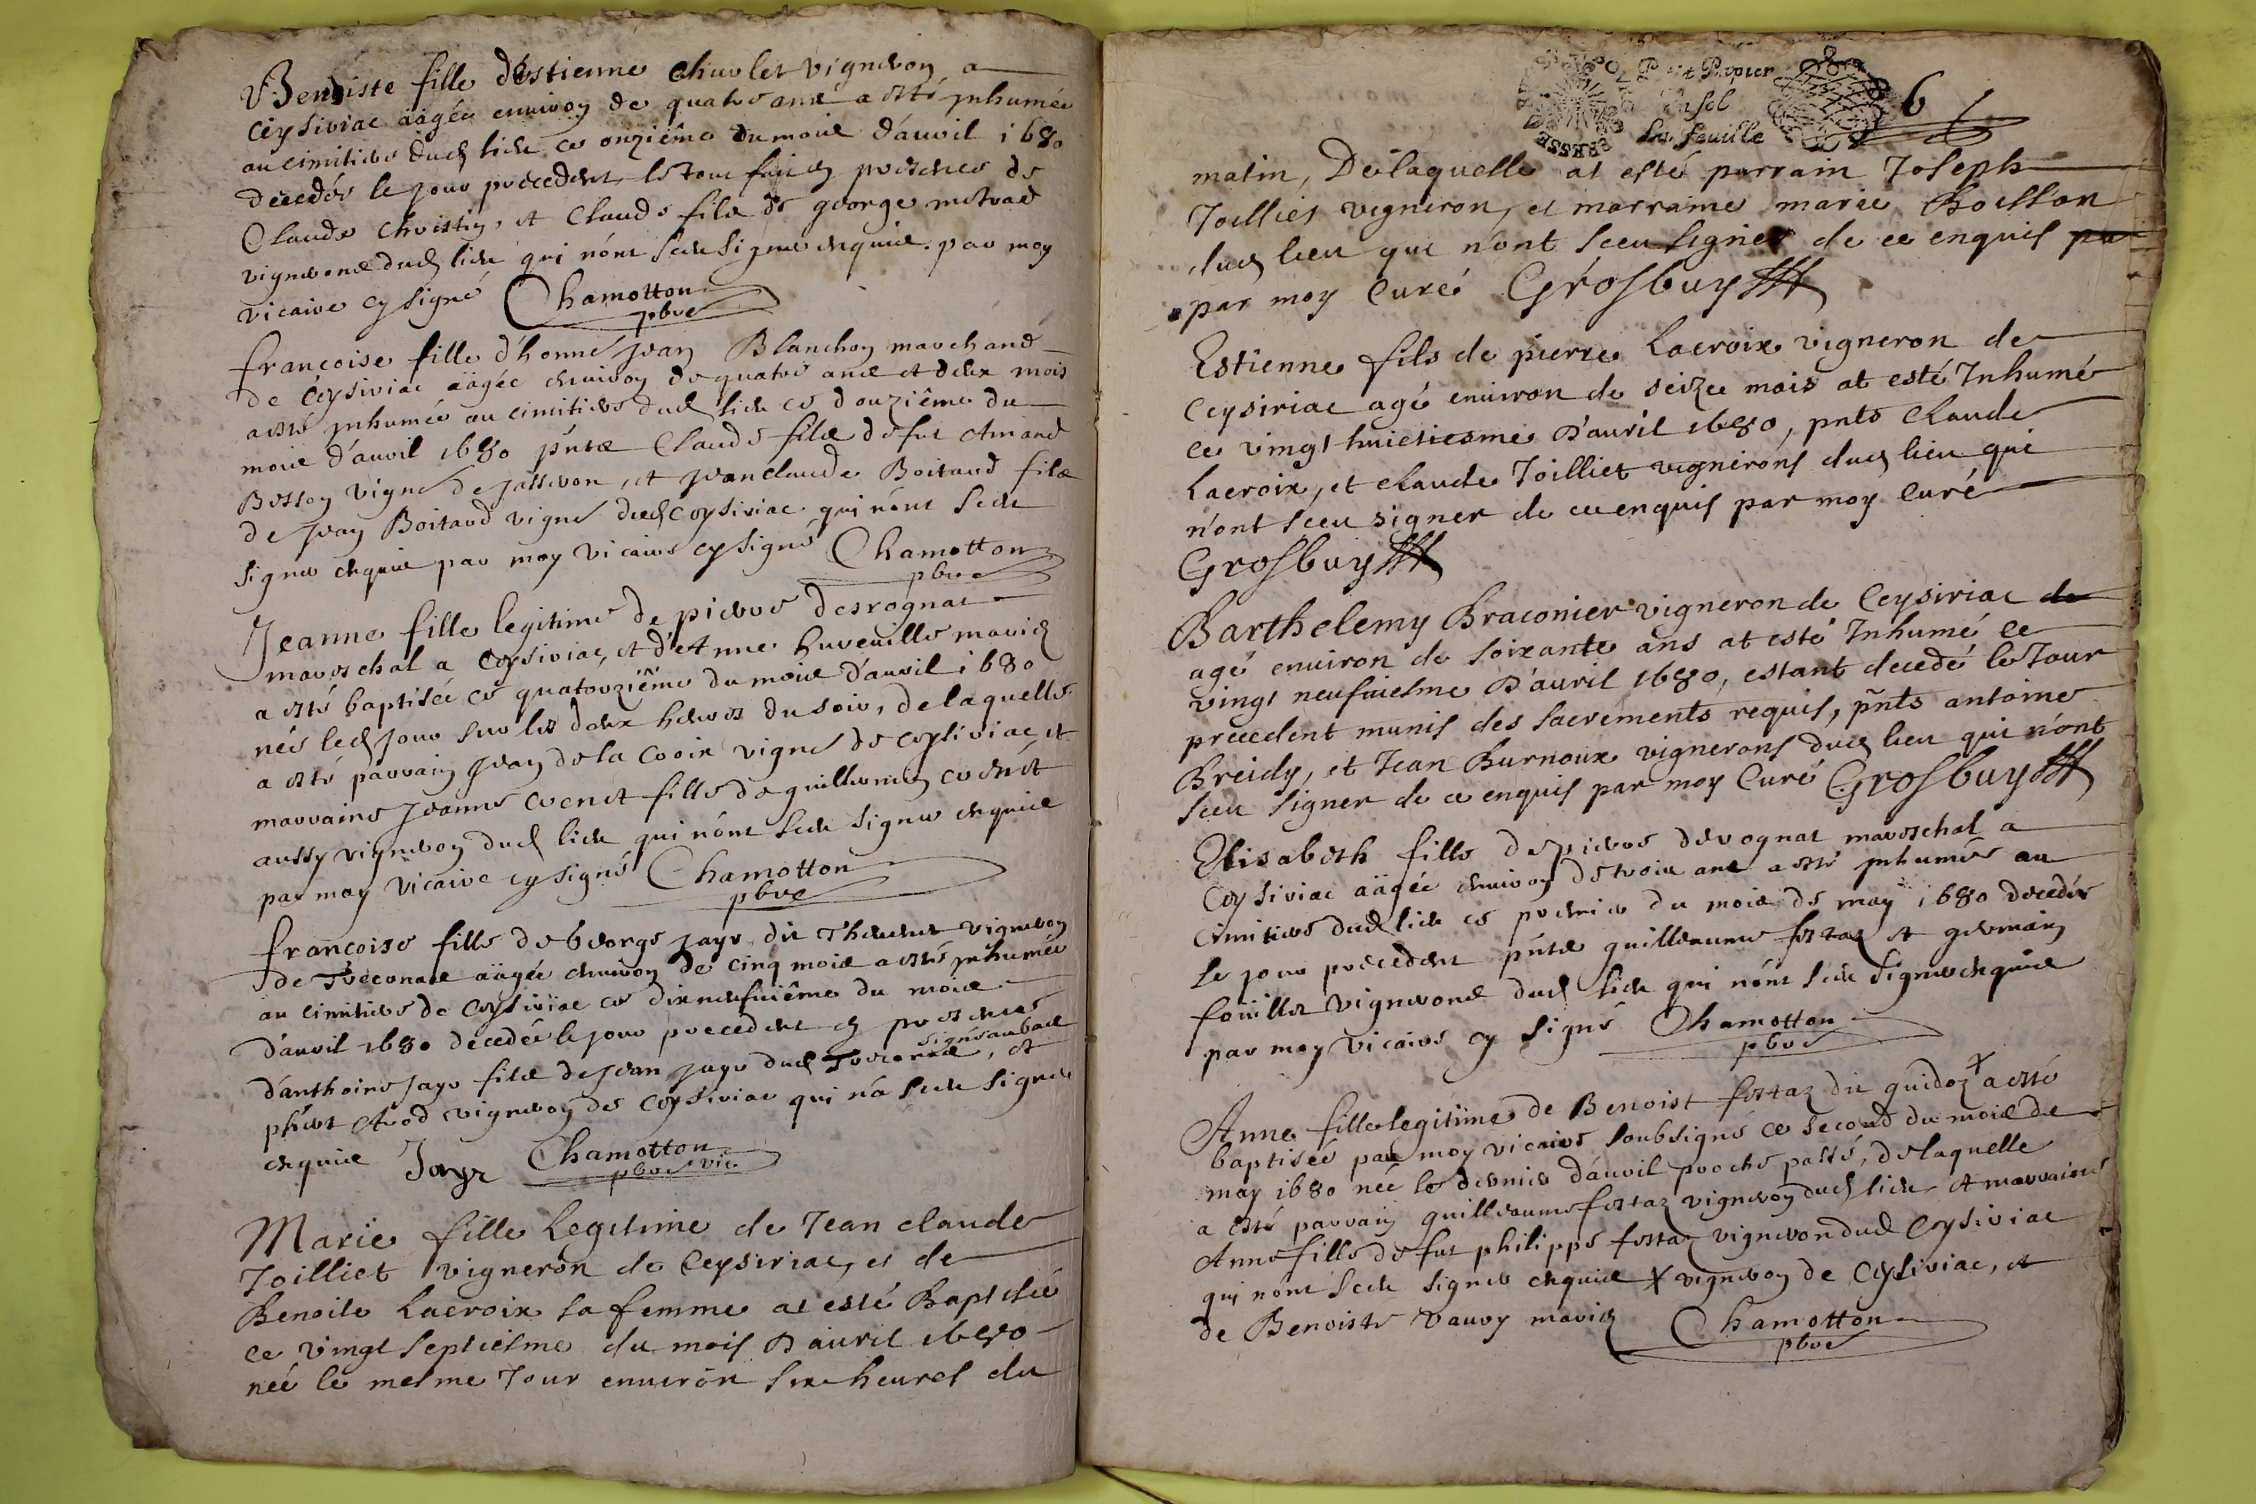 Benoiste fille d'Estienne Chuulet vigneron a
Ceysiriac äagée enuiron de quatre ans a esté inhumée
au cimitiere dud lieu ce onziême du mois d'auril 1680
decedée le jour precedent le tout fait en presence de
Claude Christin, et Claude fils de george
vignerons dud lieu qui n'ont sceu signer enquis. par moy
vicaire sy signé Chamotton
pbre
francoise fille d'honne Jean Blanchon marchand
de Ceysiriac äagée enuiron de quatre ans et deux mois
a esté inhumée au cimitiere dud lieu ce douziême du
mois d'auril 1680 pnts Claude fils de fut Amand
Besson vigne de Jasseron, et Jean claude Boitard fils
de Jean Boitard vigne dud Ceysiriac qui n'ont sceu
signer enquis par moy vicaire sy signé Chamotton
pbre
Jeanne fille legitime de pierre desrognat
mareschal a Ceysiriac, et d'Anne huueille mariez
a esté baptisée ce quatorziême du mois d'auril 1680
née led jour sur les deux heures du soir, de laquelle
a esté parrain Jean de la Croix vigne de Ceysiriac, et
marraine Jeanne fille de guillermin
aussy vigneron dud lieu qui n'ont sceu signer enquis
par moy vicaire sy signé Chamotton
pbre
francoise fille de George Jayr dit Theuenet vigneron
de Treconas äagée enuiron de cinq mois a esté inhumée
au cimitiere de Ceysiriac ce dixneufuiême du mois
d'auril 1680 decedée le jour precedent en presence
d'anthoine Jayr fils de Jean Jayr dud Treconas, et
signé aubas
phert Arod vigneron de Ceysiriac qui n'a sceu signer
enquis Jayr Chamotton
pbre vic.
Marie fille Legitime de Jean claude
Joilliet vigneron de Ceysiriac, et de
Benoite Lacroix sa femme at esté Baptisée
ce vingt septiesme du mois D'auril 1680
née le mesme Jour enuiron six heures du
Petit Papier
Un sol
la feuille
6
matin, De laquelle at esté parrain Joseph
Joilliet vigneron, et marraine marie Boisson
dud lieu qui n'ont sceu signer de ce enquis par
par moy Curé Grosbuy
Estienne fils de pierre Lacroix vigneron de
Ceysiriac agé enuiron de seize mois at esté Inhumé
ce vingt huictiesme D'auril 1680, pnts Claude
Lacroix, et claude Joilliet vignerons dud lieu qui
n'ont sceu signer de ce enquis par moy Curé
Grosbuy
Barthelemy Braconier vigneron de Ceysiriac de
agé enuiron de soixante ans at esté Inhumé ce
vingt neufuiesme D'auril 1680, estant decedé le Jour
precedent munis des sacrements requis, pnts antoine
Breidy, et Jean Burnoux vignerons dud lieu qui n'ont
sceu signer de ce enquis par moy Curé Grosbuy
Elisabeth fille de pierre derognat mareschal a
Ceysiriac äagée enuiron de trois ans a esté inhumée au
cimitiere dud lieu ce premier du mois de may 1680 decedée
le jour precedent pnts guilleaume fertaz et germain
foüillet vignerons dud lieu qui n'ont sceu signer enquis
par moy vicaire sy signé Chamotton
pbre
Anne fille legitime de Benoist fertaz dit guidoz X a esté
baptisée par moy vicaire soubsigné ce second du mois de
may 1680 née le dernier d'auril proche passé, de laquelle
a esté parrain guilleaume fertaz vigneron dud lieu et marraine
Anne fille de fut philippe fertaz vigneron dud Ceysiriac
qui n'ont sceu signer enquis X vigneron de Ceysiriac, et
de Benoiste Vaury mariez Chamotton
pbre